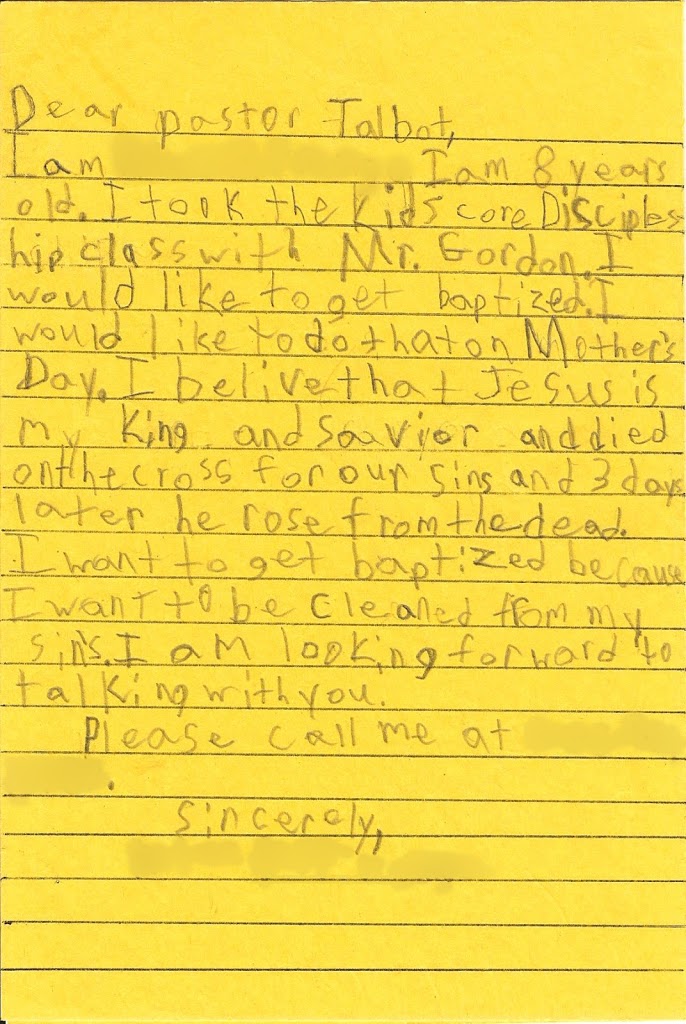 Dear pastor Talbot,
I am I am 8 years
old. I took the Kids core Disciples
hip class with Mr. Gordon. I
would like to get baptized. I
would like to do that on Mother's
Day. I belive that Jesus is
my King and Souvior and died
on the cross for our sins and 3 days
later he rose from the dead.
I want to get baptized because
I want to be cleaned from my
sin's. I am looking forward to
talking with you.
Please call me at
.
Sincerely,